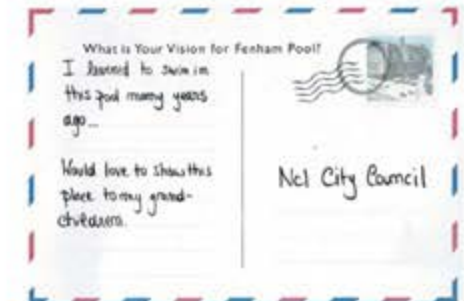 What is Your Vision for Fenham Pool?
I learned to swim in
this pool many years
ago...
Would love to show this
place to my grand-
children.
Ncl City Council